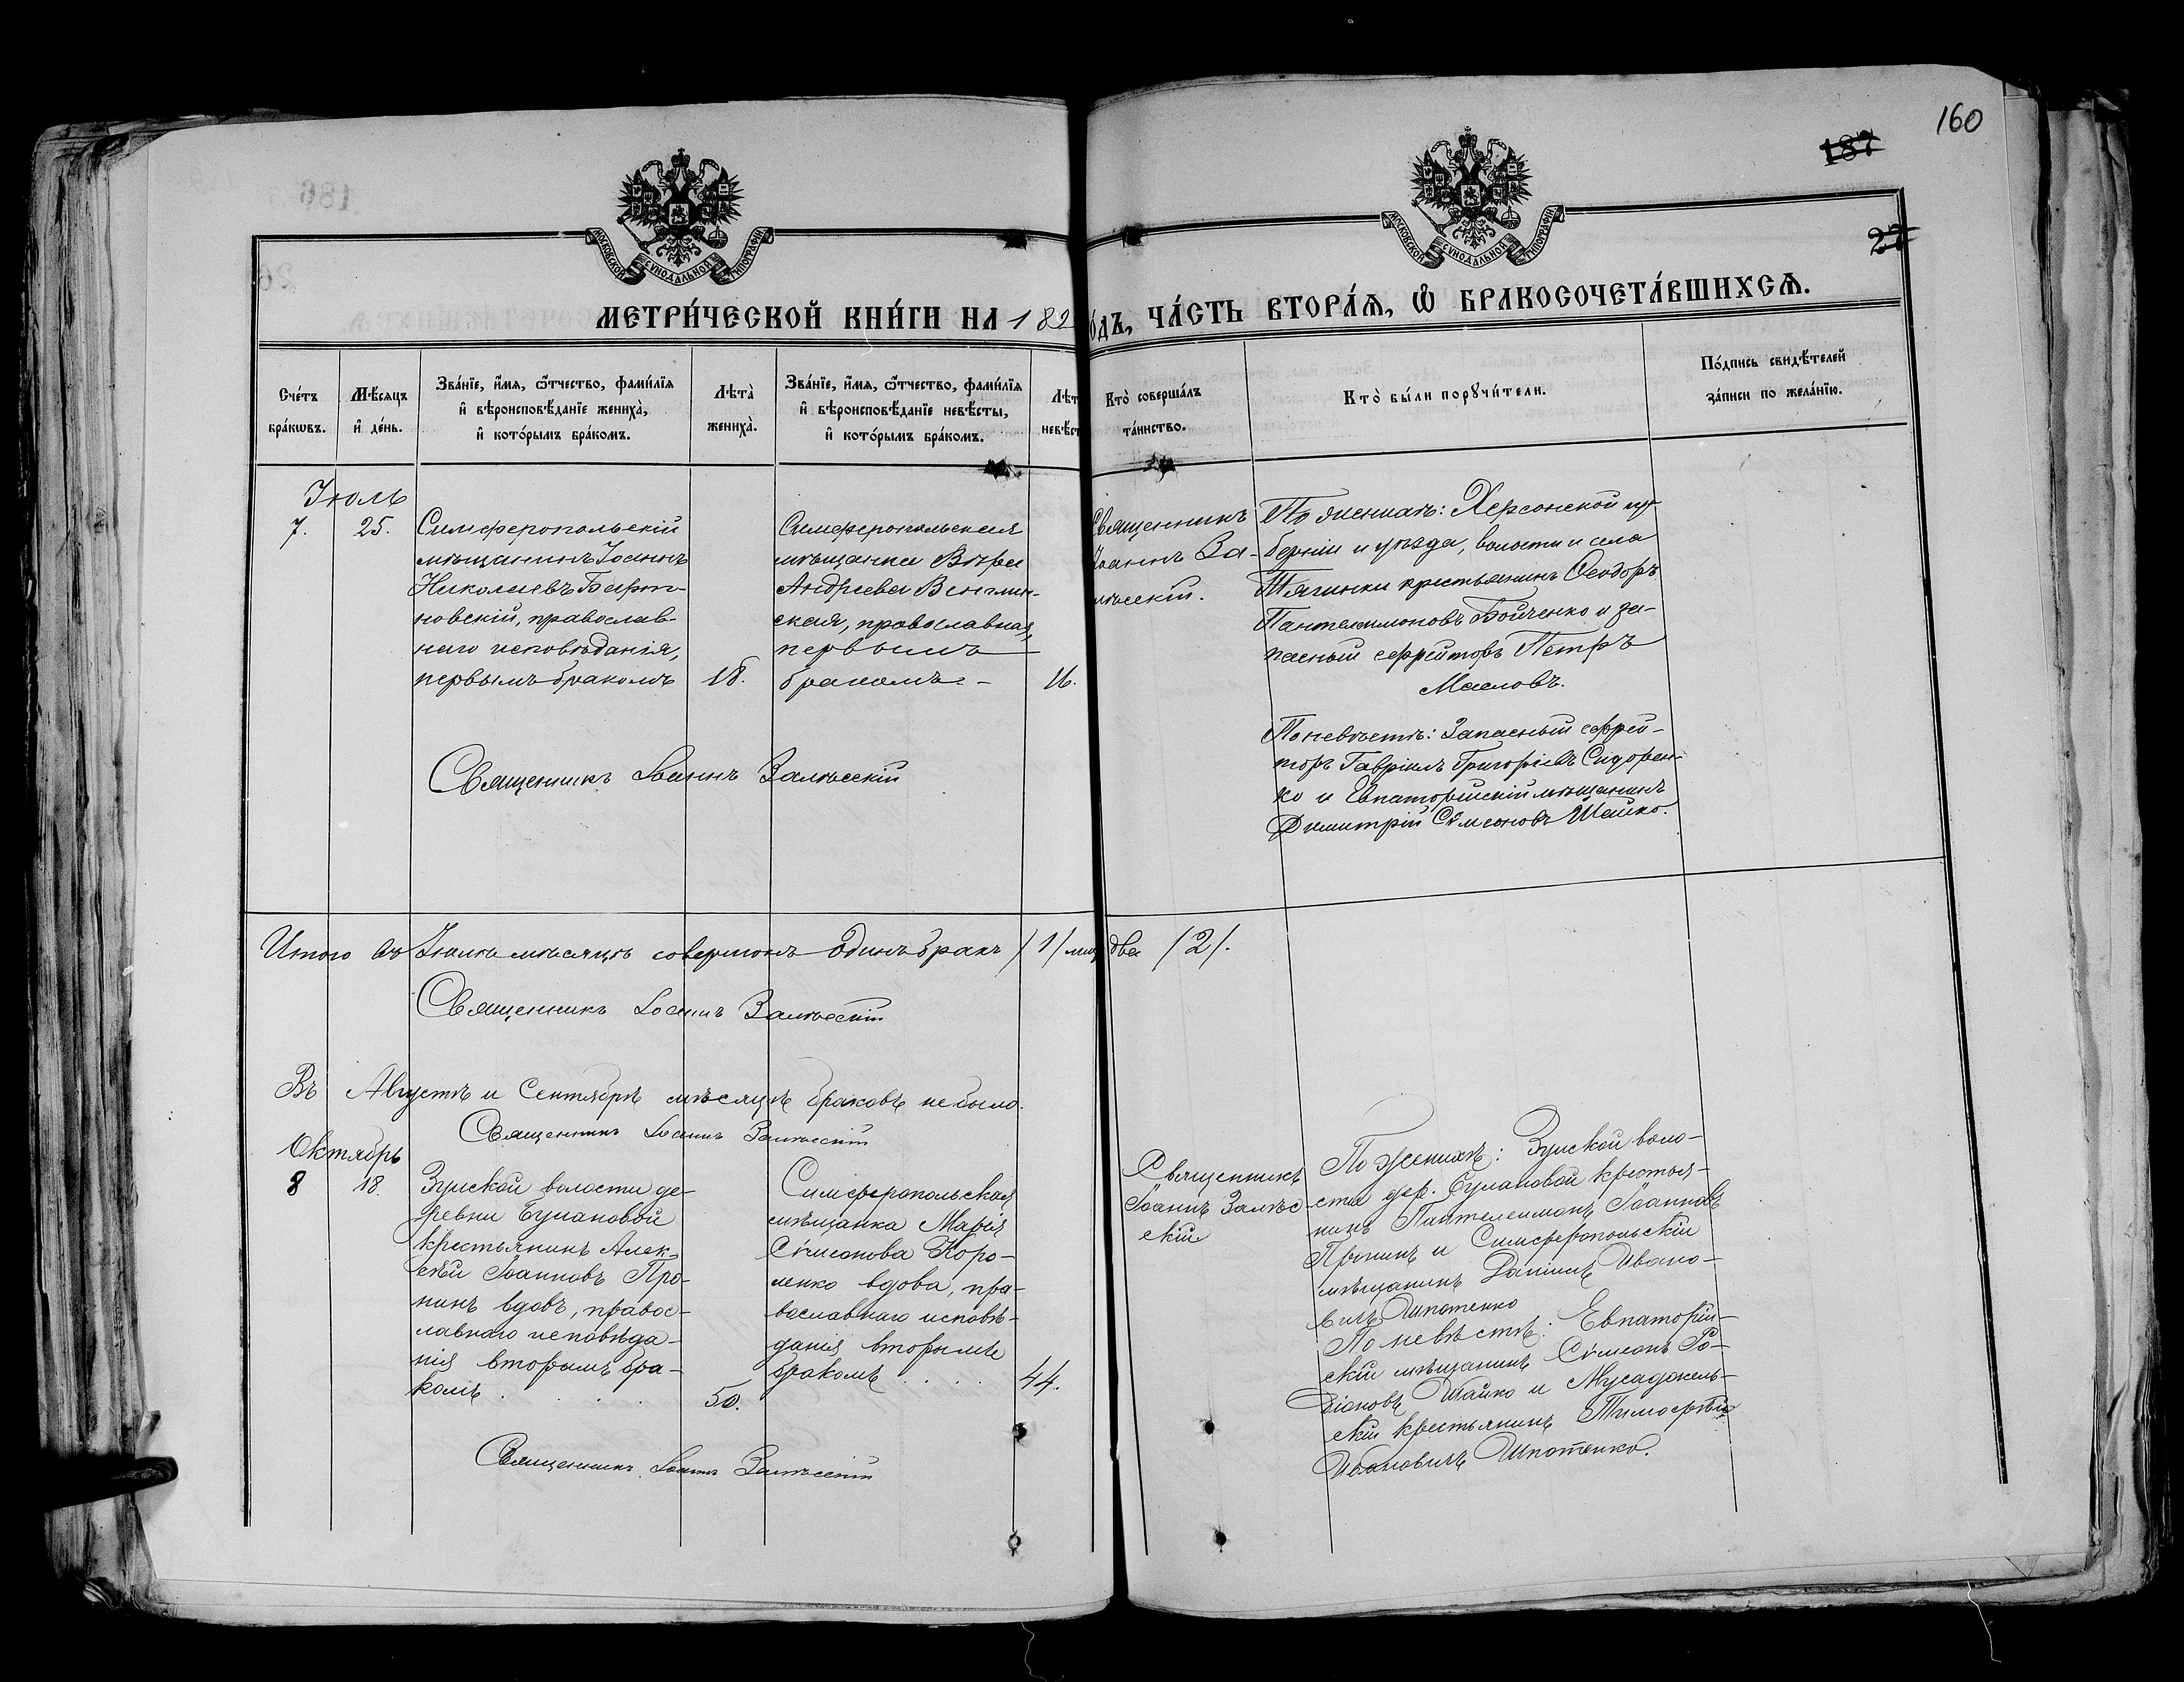 160
187
27
МОСКОВСКОЙ СѴНОДАЛЬНОЙ ТИПОГРАФІИ
МОСКОВСКОЙ СѴНОДАЛЬНОЙ ТИПОГРАФІИ
МЕТРИ́ЧЕСКОЙ КНИ́ГИ НА 189
о́дъ, ЧА́СТЬ ВТОРА́Ѧ, Ѿ БРАКОСОЧЕТА́ВШИХСѦ.
Сче́тъ бра́кѡвъ.
Мѣ́сяцъ и҆ де́нь.
Зва́нїе, и҆́мѧ, ѻ҆́тчество, фами́лїѧ
и҆ вѣроисповѣ́данїе жениха̀,
и҆ кото́рымъ бра́комъ.
Лѣта̀ жениха̀.
Зва́нїе, и҆́мѧ, ѻ҆́тчество, фами́лїѧ
и҆ вѣроисповѣ́данїе невѣ́сты,
и҆ кото́рымъ бра́комъ.
Лѣт
невѣ́ст
Кто̀ соверша́лъ
та́инство.
Кто̀ бы́ли порꙋчи́тели.
По́дпись свидѣ́телей
за́писи по жела́нїю.
Іюль
7.
25.
Симферопольскій
мѣщанинъ Іоаннъ
Николаевъ
новскій, православ-
наго исповѣданія,
первымъ бракомъ
18.
Симферопольская
мѣщанка Вѣра
Андреева
ская, православная,
первымъ
бракомъ –
16.
Священникъ
Іоаннъ За-
лѣсскій.
По женихѣ: Херсонской гу-
берніи и уѣзда, волости и села
Тягинки крестьянинъ Ѳеодоръ
Пантелеимоновъ Бойченко и за-
пасный ефрейторъ Петръ
Масловъ.
По невѣстѣ: Запасный ефрей-
торъ Гавріилъ Григоріевъ Сидорен-
ко и Евпаторійскій мѣщанинъ
Димитрій Сѵмеоновъ Шайко.
Священникъ Іоаннъ Залѣсскій
Итого въ Іюлѣ мѣсяцѣ совершонъ одинъ бракъ /1/ лиц два /2/.
Священникъ Іоаннъ Залѣсскій
Въ Августѣ и Сентябрѣ мѣсяцѣ браковъ не было.
Священникъ Іоаннъ Залѣсскій
Октябрь
8
18.
Зуйской волости де-
ревни
крестьянинъ Алек-
сѣй Іоанновъ Про-
нинъ вдовъ, правос-
лавнаго исповѣда-
нія вторымъ бра-
комъ . . . .
50.
Симферопольская
мѣщанка Марія
Сѵмеонова Коро-
ленко вдова, пра-
вославнаго исповѣ-
данія вторымъ
бракомъ . . . .
44.
Священникъ
Іоаннъ Залѣс-
скій
По женихѣ: Зуйской воло-
сти дер. крестья-
нинъ Пантелеимонъ Іоанновъ
Пронинъ и Симферопольскій
мѣщанинъ Даніилъ Ивано-
вичъ Шпотенко
По невѣстѣ: Евпаторій-
скій мѣщанинъ Сѵмеонъ Ро-
діоновъ Шайко и
скій крестьянинъ Тимофѣй
Ивановичъ Шпотенко.
Священникъ Іоаннъ Залѣсскій